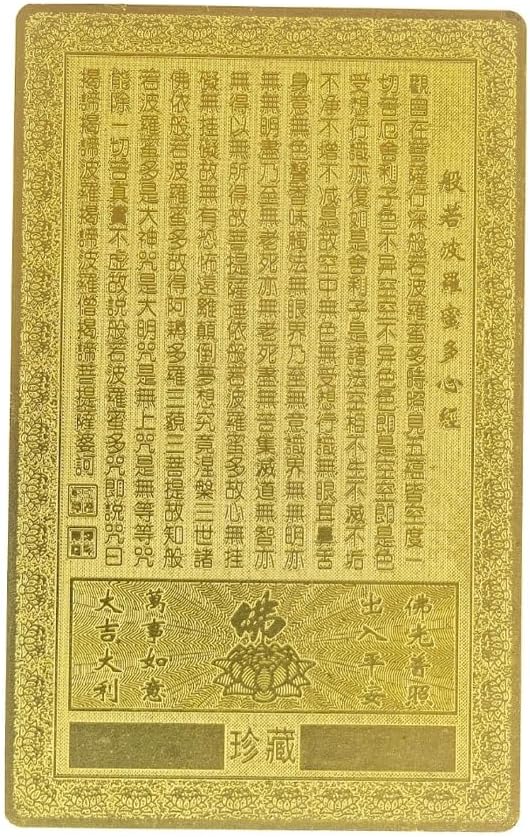 般若波羅蜜多心經
觀自在菩薩行深般若波羅蜜多時照見五蘊皆空度一
切苦厄舍利子色不异空空不异色色即是空空即是色
受想行識亦復如是舍利子是諸法空相不生不滅不垢
不净不增不减是故空中無色無受想行識無眼耳鼻舌
身意無色聲香味觸法無眼界乃至無意識界無無明亦
無無明盡乃至無老死亦無老死盡無苦集滅道無智亦
無得以無所得故菩提薩埵依般若波羅蜜多故心無挂
礙無挂礙故無有恐怖遠離顛倒夢想究竟涅槃三世諸
佛依般若波羅蜜多故得阿耨多羅三藐三菩提故知般
若波羅蜜多是大神咒是大明咒是無上咒是無等等咒
能除一切苦真實不虛故説般若波羅蜜多咒即説咒曰
揭諦揭諦波羅揭諦波羅僧揭諦菩提薩婆訶
佛光普照
出入平安
佛
萬事如意
大吉大利
珍藏